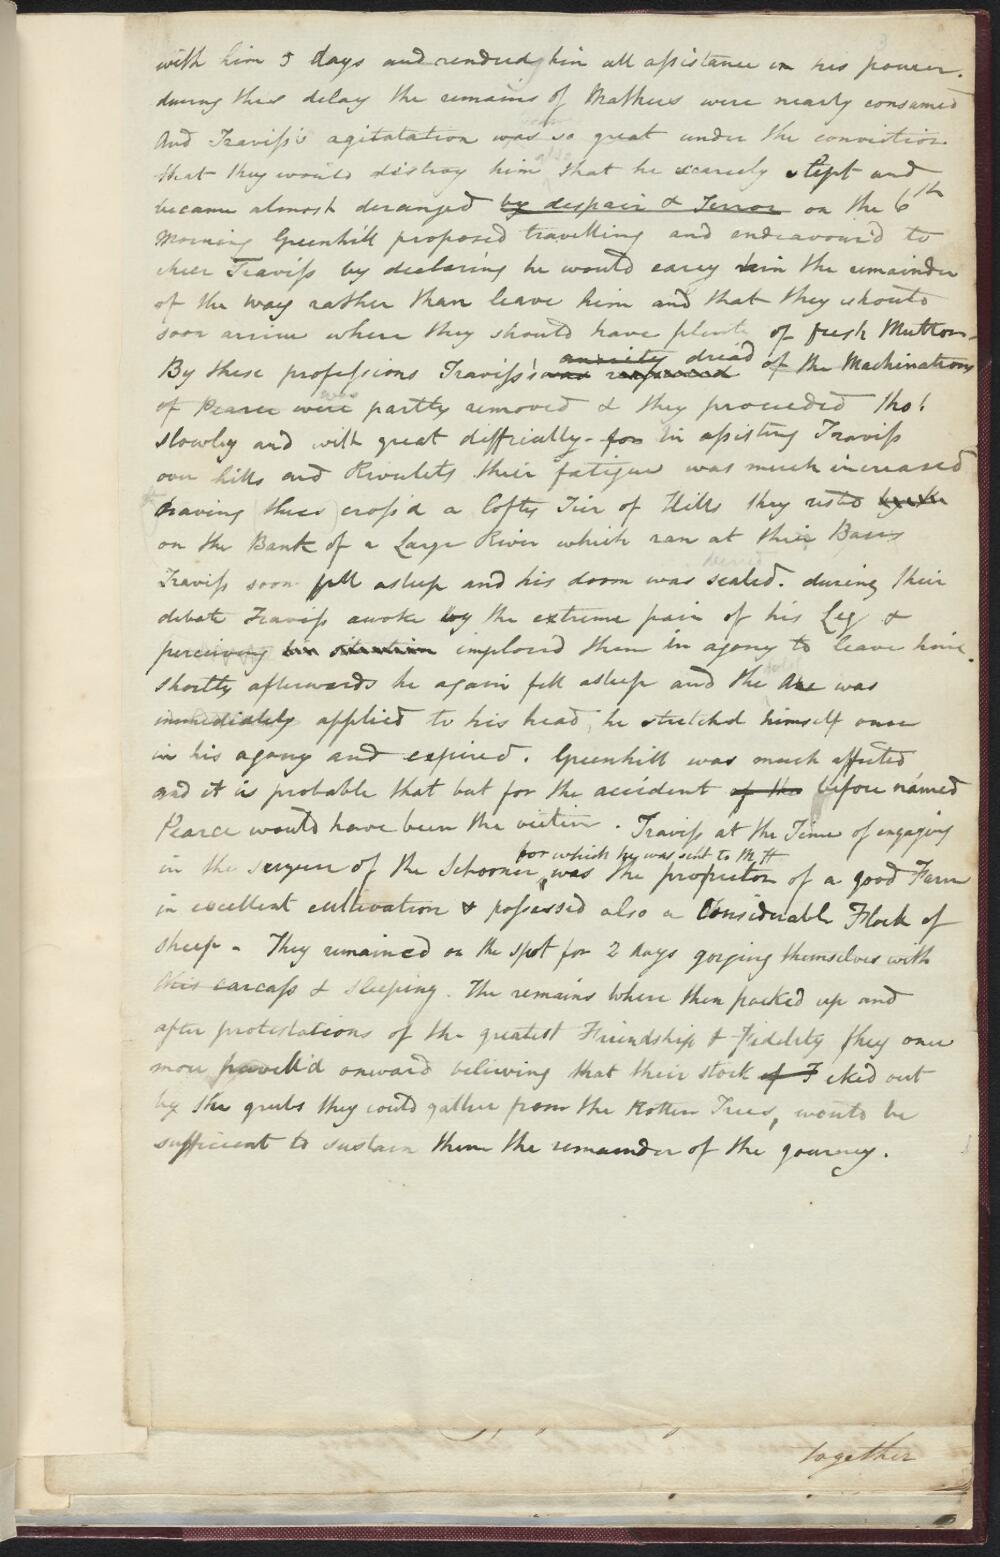 with him 5 days and rendered him all assistance in his power.
during this delay the remains of Mathers were nearly consumed
And Traviss's agitatation was so great under the conviction
that they would distroy him that he scarcely slept and
became almost deranged by despair & Terror on the 6th
Morning Greenhill proposed travelling and endeavour'd to
cheer Traviss by declaring he would carry him the remainder
of the way rather than leave him and that they should
soon arrive where they should have plenty of fresh Mutton.
anxiety dread
By these professions Traviss's was of the Machinations
of Pearce were partly removed & they proceeded tho'
slowley and with great difficially - for in assisting Traviss
over hills and Rivulets their fatigue was much increased
having thus cross'd a lofty Tier of Hills they rested by the
on the Bank of a Large River which ran at their Basis
Traviss soon fell asleep and his doom was sealed. during their
debate Traviss awoke by the extreme pain of his Leg &
perceiving his situation implored them in agony to leave him.
Shortly afterwards he again fell asleep and the Axe was
immediately applied to his head, he stretched himself once
in his agony and expired. Greenhill was much affected
and it is probable that but for the accident of the before named
Pearce would have been the victim. Traviss at the Time of engaging
for which he was sent to M H
in the seizure of the Schooner, was the proprietor of a good Farm
in excellent cultivation & possessed also a Considerable Flock of
sheep - They remained on the spot for 2 days gorging themselves with
this carcass & sleeping. The remains where then packed up and
after protestations of the greatest Friendship & Fidelity they once
more travell'd onward believing that their stock of F eked out
by the grubs they could gather from the Rotten Trees, would be
sufficient to sustain them the remainder of the journey.
together